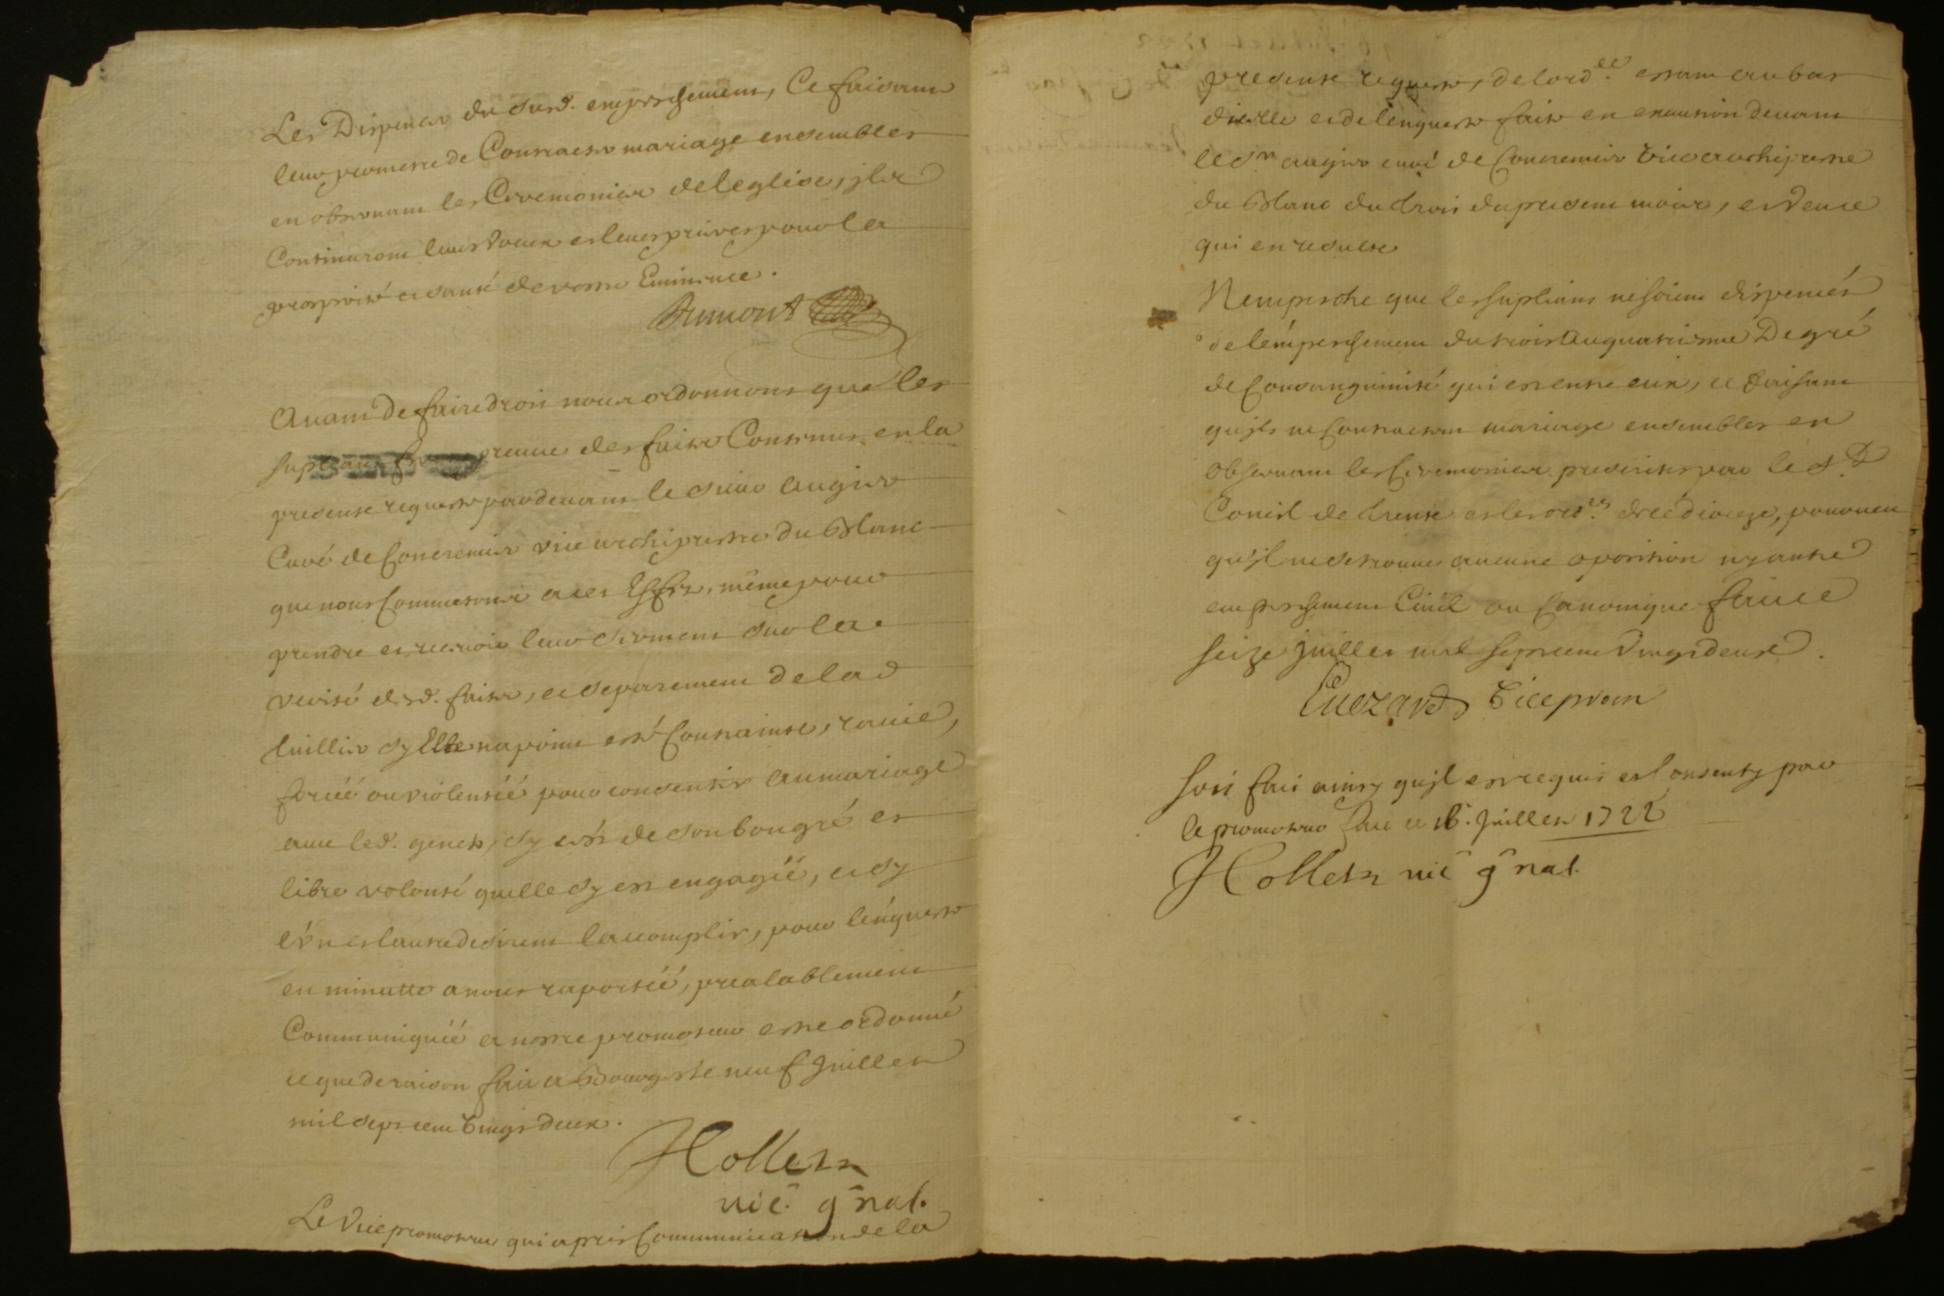 Les Dispenser du susd. empeschement, Ce faisant
leur permettre de Contracter mariage ensembles
en observant les Ceremonies de leglise, ils
Continuront leurs voeux et leurs prieres pour la
prosperité et santé de vostre Eminence.
Dumont
Avant De faire droit nous ordonnons que les
supliants preuve des faits Contenus en la
presente requeste pardevant le sieur augier
Curé de Concremier vice archiprestre du Blanc
que nous Commettons a cet Effet, même pour
prendre et recevoir leur serment sur la
verité desd. faits, et separement de lad
luillier sy Elle na point esté Contrainte, ravie,
forcéé ou violentéé pour consentir au mariage
avec led. genest, sy cest de son bon gré et
libre volonté quelle sy est engagéé, et sy
lún et lautre desirent laccomplir, pour lénqueste
en minutte a nous raportéé, prealablement
Communiquéé a nostre promoteur estre ordonné
ce que de raison fait a Bourges le neuf Juillet
mil sept cent vingt deux.
Hollet
vic. gnal.
Le Vice promoteur qui a pris Communication de la
presente requeste, de lord.ce estant au bas
dicelle et de lénqueste faite en execution devant
le Sr. augier curé de Concremier vice archiprestre
du Blanc du trois du present mois, et de ce
qui en resulte
Nempesche que les supliants ne soient dispensés
de lémpeschement du trois au quatriesme Degré
de Consanguinité qui est entre eux, ce faisant
qujls ne Contractent mariage ensembles en
observant les Ceremonies prescrites par le St.
Concil de trente et les ord.ces de ce dioceze, pourveu
qujl ne se trouve aucune oposition ny autre
empeschement Civil ou Canonique fait ce
seize juillet mil sept cent vingt deux.
vice prom
soit fait ainsy qujl est requis et Consenty par
le promoteur fait ce 16. Juillet 1722
Hollet vic gnal.